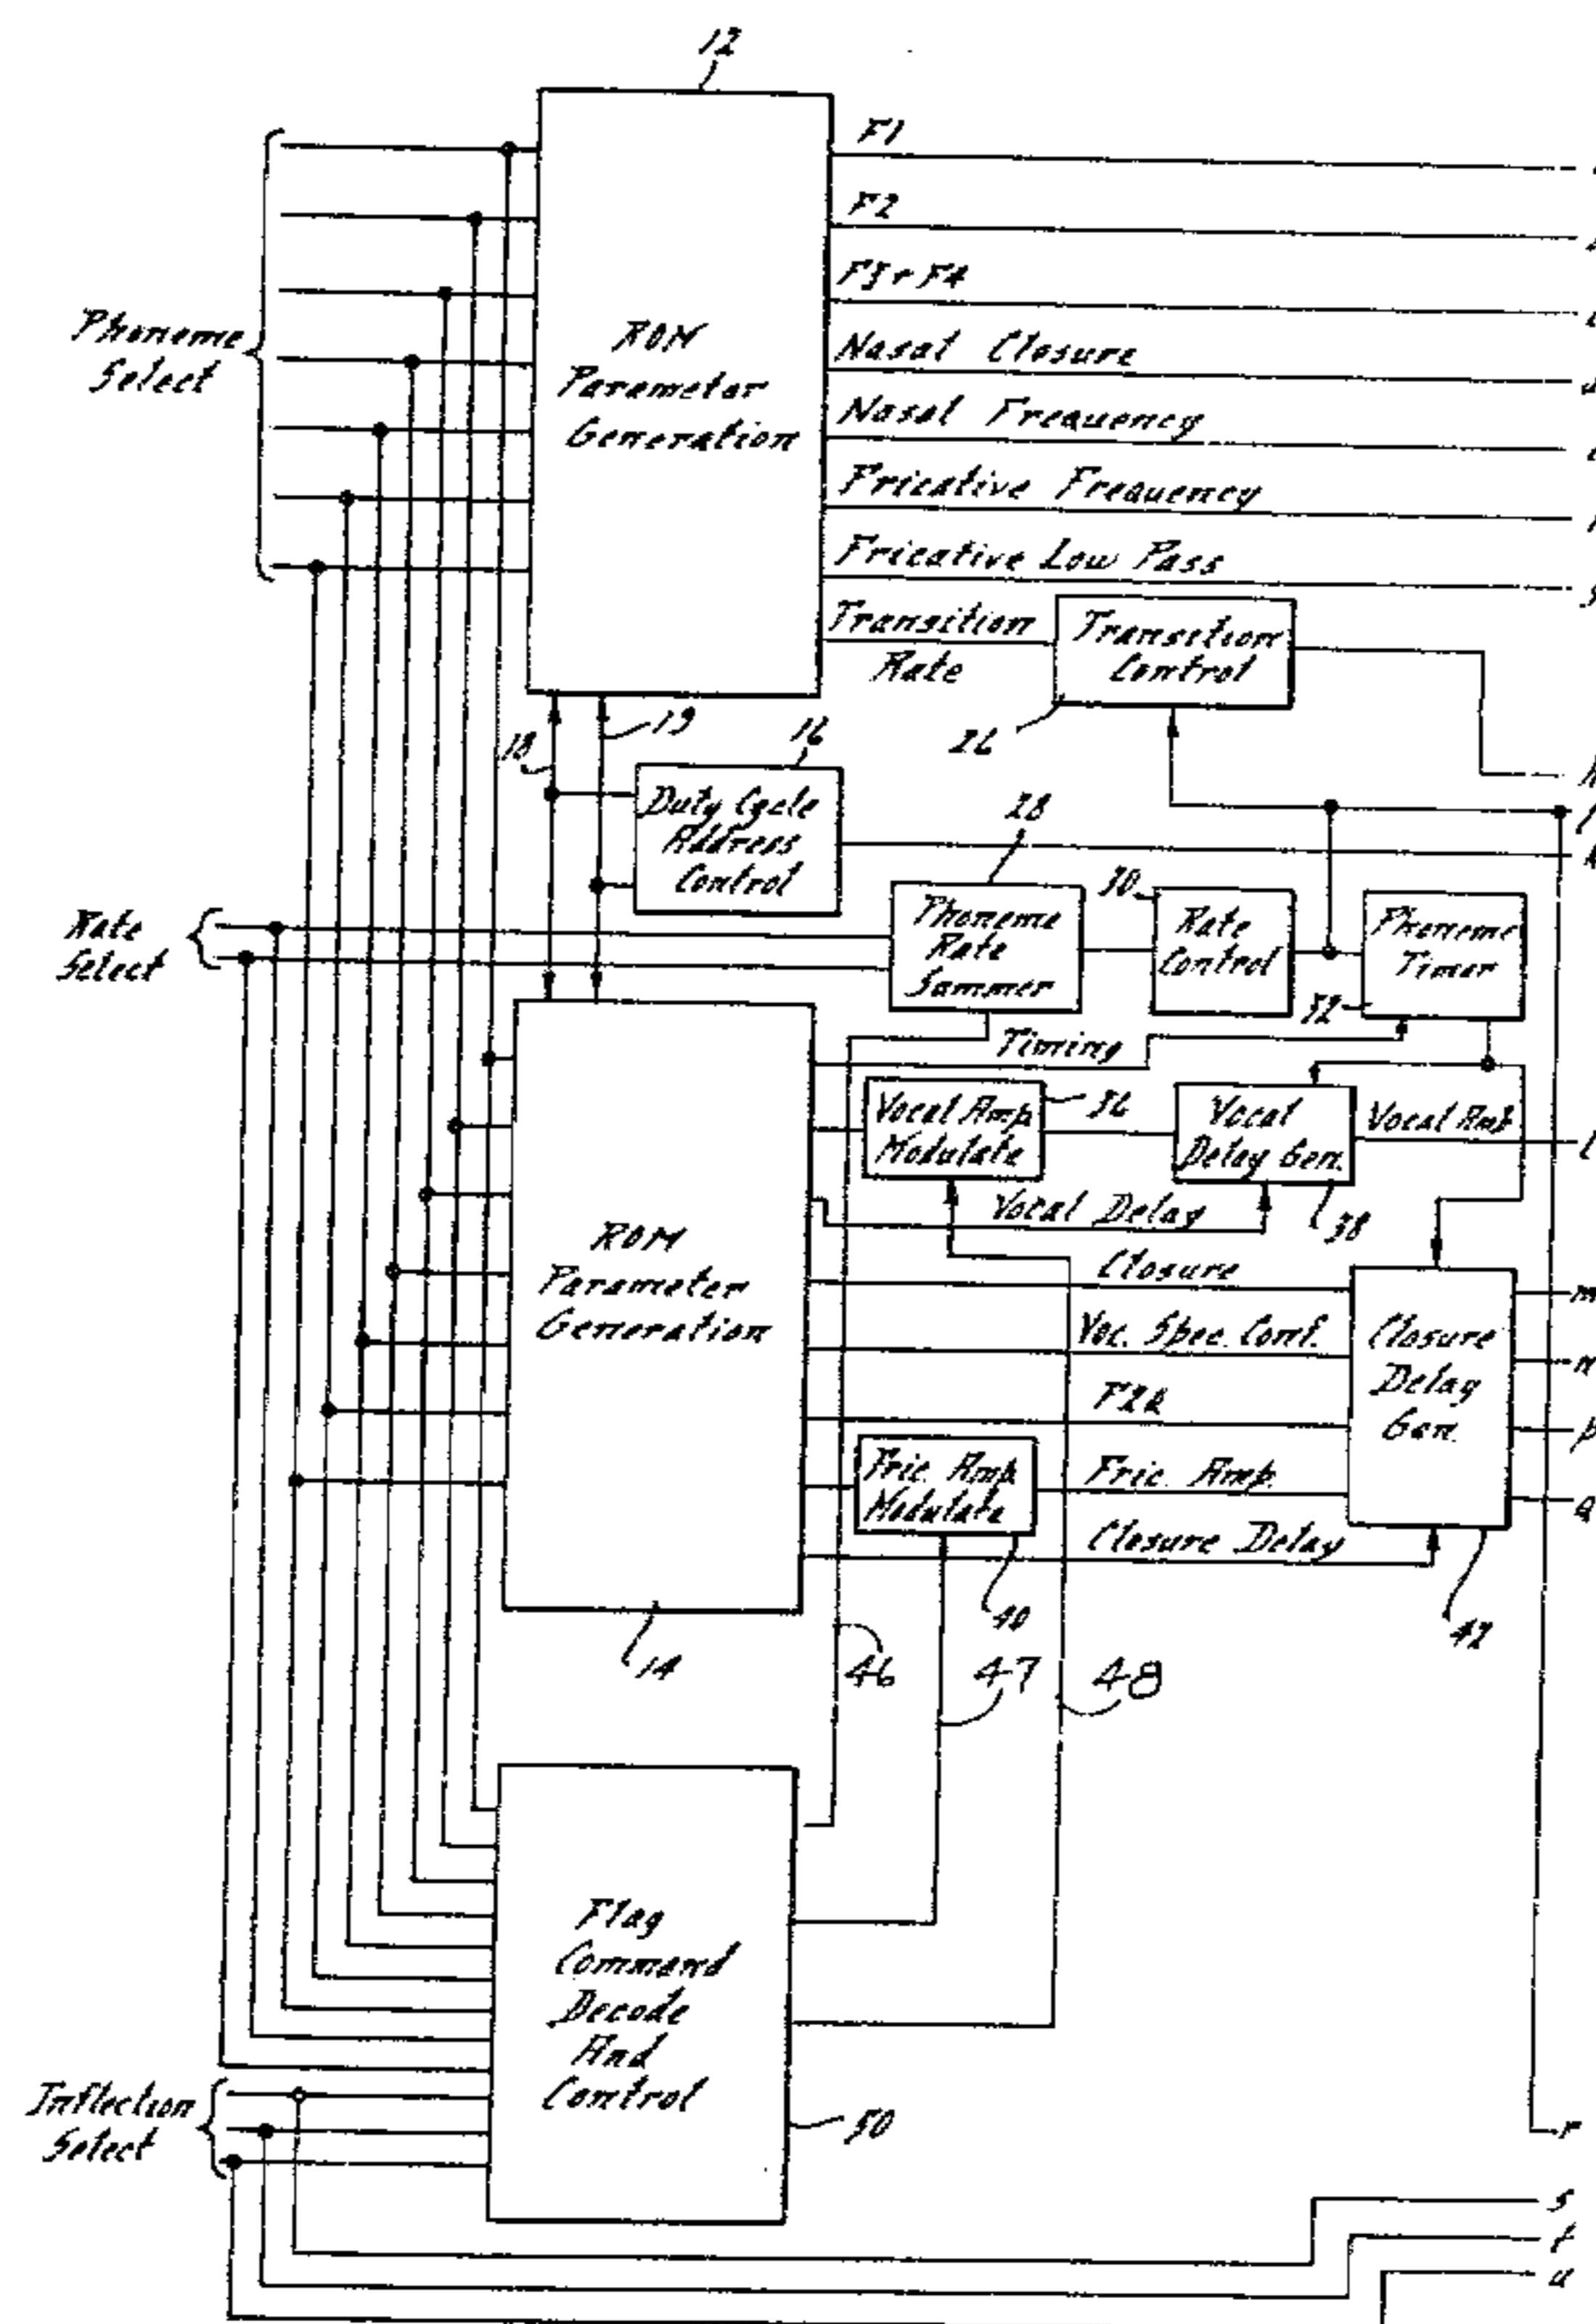 12
F1
F2
F3+F4
Phoneme
Select
ROM
Parameter
Generation
Nasal Closure
Nasal Frequency
Fricative Frequency
Fricative Low Pass
Transition
Rate
Transition
Control
26
18
19
16
Duty Cycle
Address
Control
28
h
k
Rate
Select
Phoneme
Rate
Summer
30
Rate
Control
Phoneme
Timer
32
Timing
Vocal Amp
Modulate
36
Vocal
Delay Gen.
38
Vocal Amp
l
Vocal Delay
ROM
Parameter
Generation
14
Closure
Voc. Spec. Conf.
F2Q
Fric. Amp
Modulate
40
Fric. Amp.
Closure Delay
Closure
Delay
Gen.
42
m
n
p
q
46
47
48
Flag
Command
Decode
And
Control
50
Inflection
Select
r
s
t
u